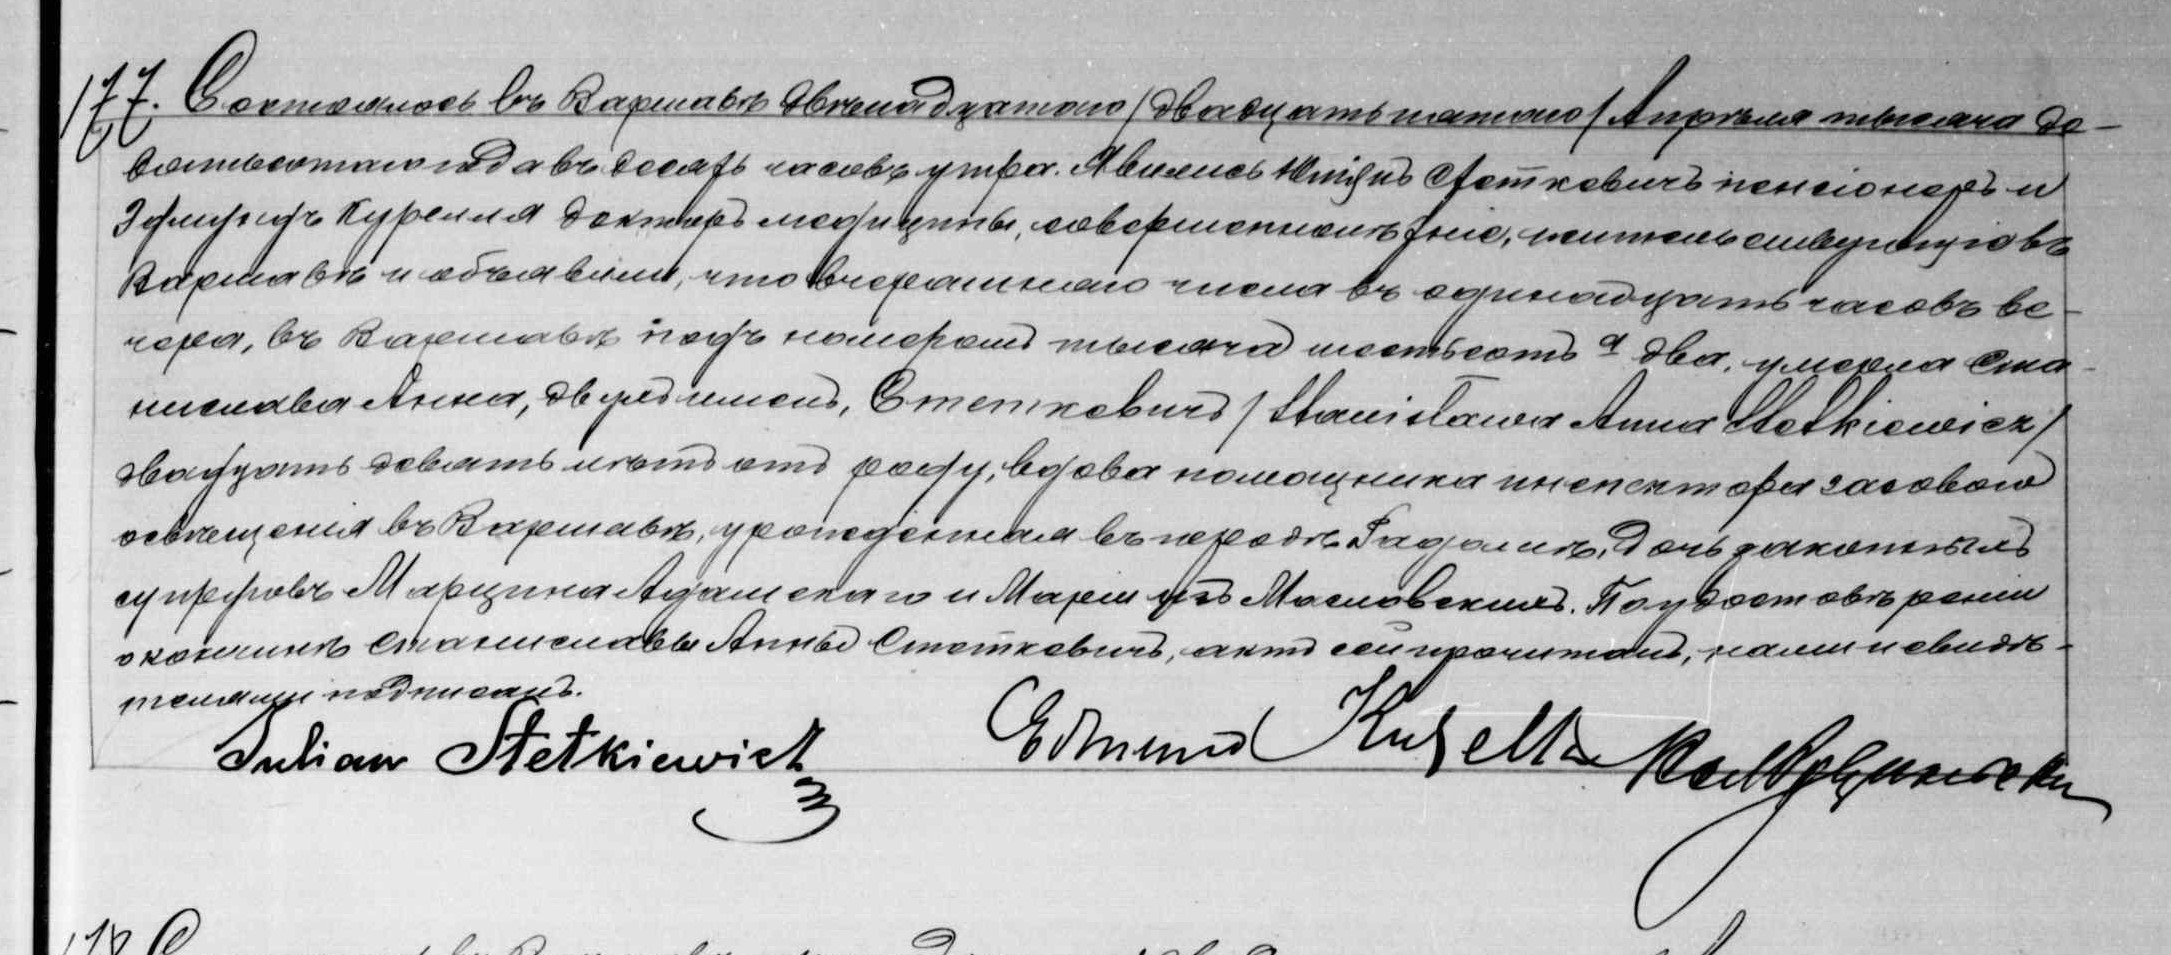 177. Состоялось въ Варшавѣ двѣнадцатаго / двадцать пятаго / Апрѣля тысяча де-
вятьсотаго года въ десять часовъ утра. Явились Юліянъ Стеткевичъ пенсіонеръ и
Эдмундъ Курелля докторъ медицины, совершеннолѣтніе, жительствующіе въ
Варшавѣ и объявили, что вчерашняго числа въ одинадцать часовъ ве-
чера, въ Варшавѣ подъ номеромъ тысяча шестьсотъ два, умерла Ста-
нислава Анна, двухъ именъ, Стеткевичъ / Stanisława Anna Stetkiewicz /
двадцать девять лѣтъ отъ роду, вдова помощника инспектора газоваго
освѣщенія въ Варшавѣ, урожденная въ городѣ Радомѣ, дочь законныхъ
супруговъ Марцина Адамскаго и Маріи изъ Масловскихъ. По удостовѣреніи
о кончинѣ Станиславы Анны Стеткевичъ, актъ сей прочитанъ, нами и свидѣ-
телями подписанъ.
Julian Stetkiewicz Edmund Kurella
178